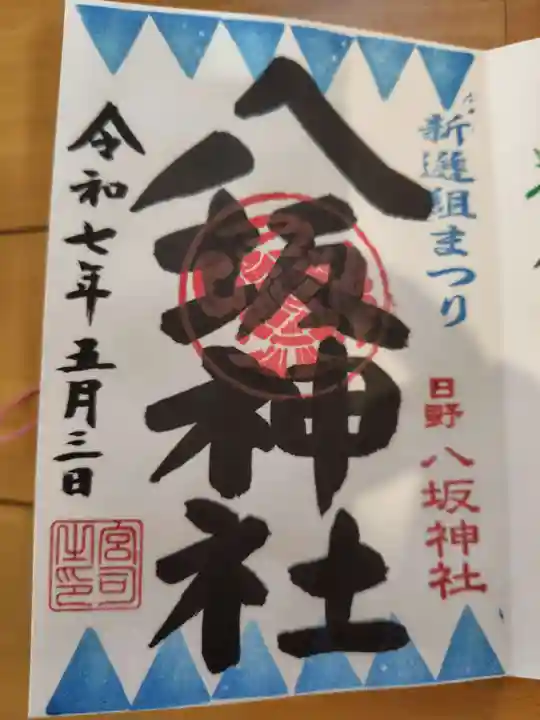 新選組まつり
日野 八坂神社
八坂神社
令和七年五月三日
宮司之印